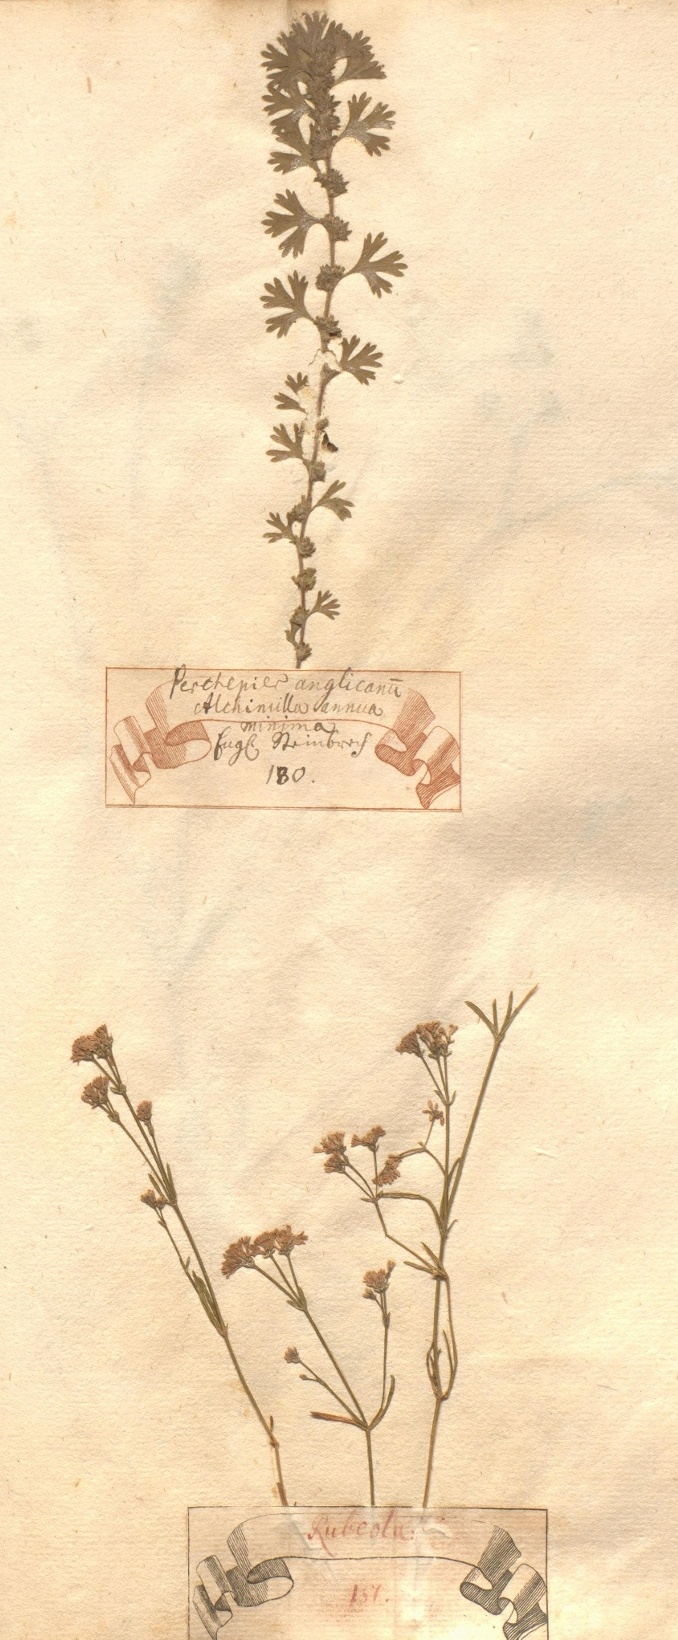 Perchepier anglicanū
Alchimilla annua
minima
Engl. Steinbrech
180.
Rubeola.
151.